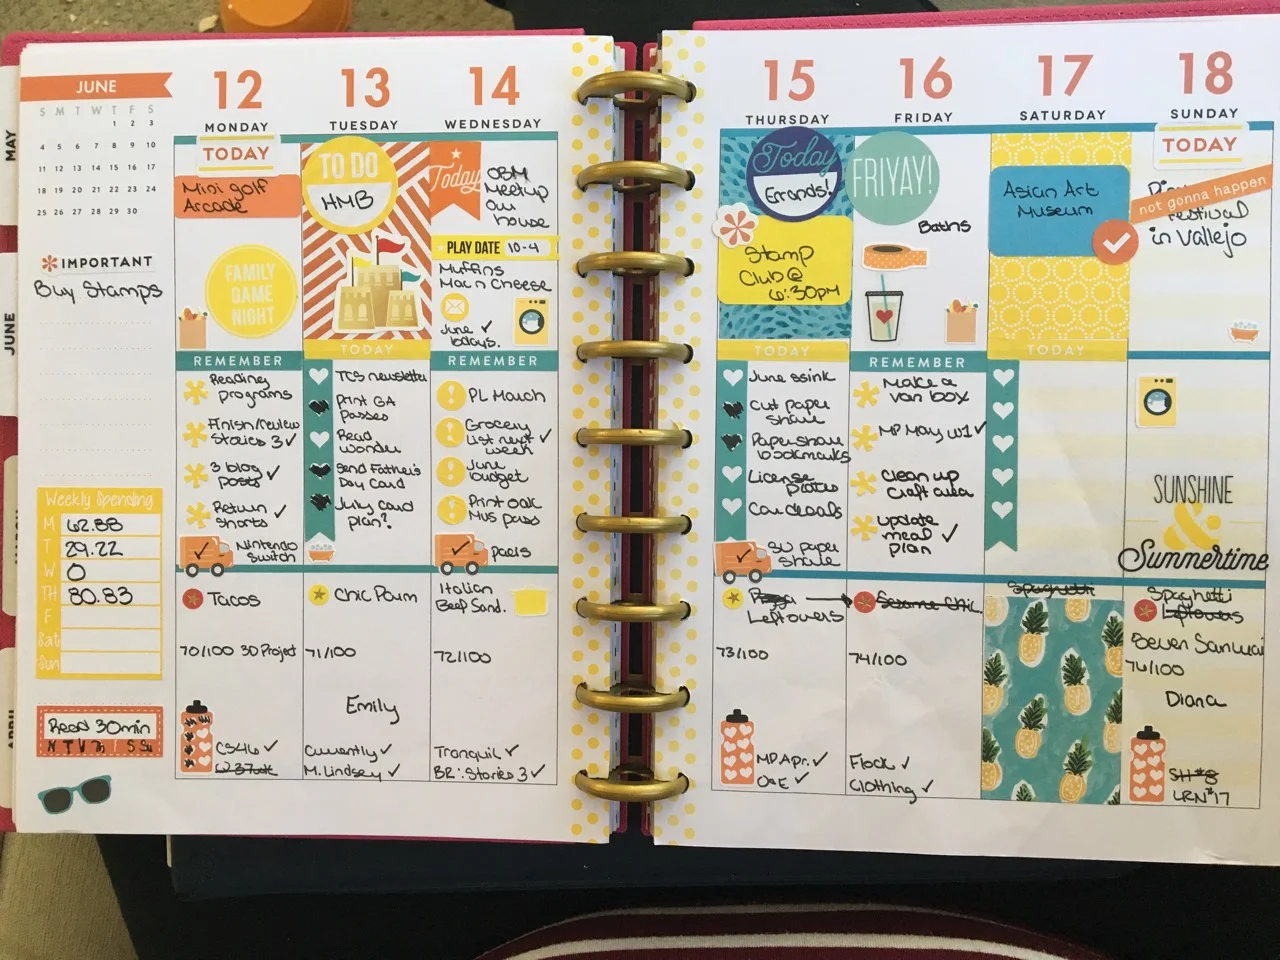 MAY
JUNE
JUNE
S M T W T F S
1 2 3
4 5 6 7 8 9 10
11 12 13 14 15 16 17
18 19 20 21 22 23 24
25 26 27 28 29 30
IMPORTANT
Buy Stamps
Weekly Spending
M 62.88
T 29.22
W 0
TH 80.83
F
Sat
Sun
Read 30min
12
MONDAY
TODAY
Mini golf
Arcade
FAMILY
GAME
NIGHT
REMEMBER
Reading
programs
Finish/review
Stories 3 ✓
3 blog
posts ✓
Return
shorts ✓
Nintendo
Switch
Tacos
70/100 3D Project
CS46 ✓
13
TUESDAY
TO DO
HMB
TODAY
TCS newsletter
Print GA
Passes
Read
wonder
Send Father's
Day Card
July card
plan?
Chic Parm
71/100
Emily
Currently ✓
M. Lindsey ✓
14
WEDNESDAY
Today
OBM
Meetup
our
house
PLAY DATE 10-4
Muffins
Mac n Cheese
June ✓
todays.
REMEMBER
PL March
Grocery
List next ✓
week
June
budget
Print Oak
Mus pass
Paris
Italian
Beef Sand.
72/100
Tranquil ✓
BR: Stories 3 ✓
15
THURSDAY
Today
Errands!
Stamp
Club @
6:30pm
TODAY
June ssink
Cut paper
share
Papershare
bookmarks
License
plates
Car deals
SU paper
share
Leftovers
73/100
MP Apr. ✓
O&E ✓
16
FRIDAY
FRIYAY!
Baths
REMEMBER
Make a
van box
MP May w1 ✓
clean up
craft area
update
meal ✓
plan
Sesame Chic
74/100
Flock ✓
Clothing ✓
17
SATURDAY
Asian Art
Museum
TODAY
Spaghetti
18
SUNDAY
TODAY
not gonna happen
Festival
in Vallejo
SUNSHINE
&
Summertime
Spaghetti
Leftovers
76/100
Diana
SH#8
LRN#17